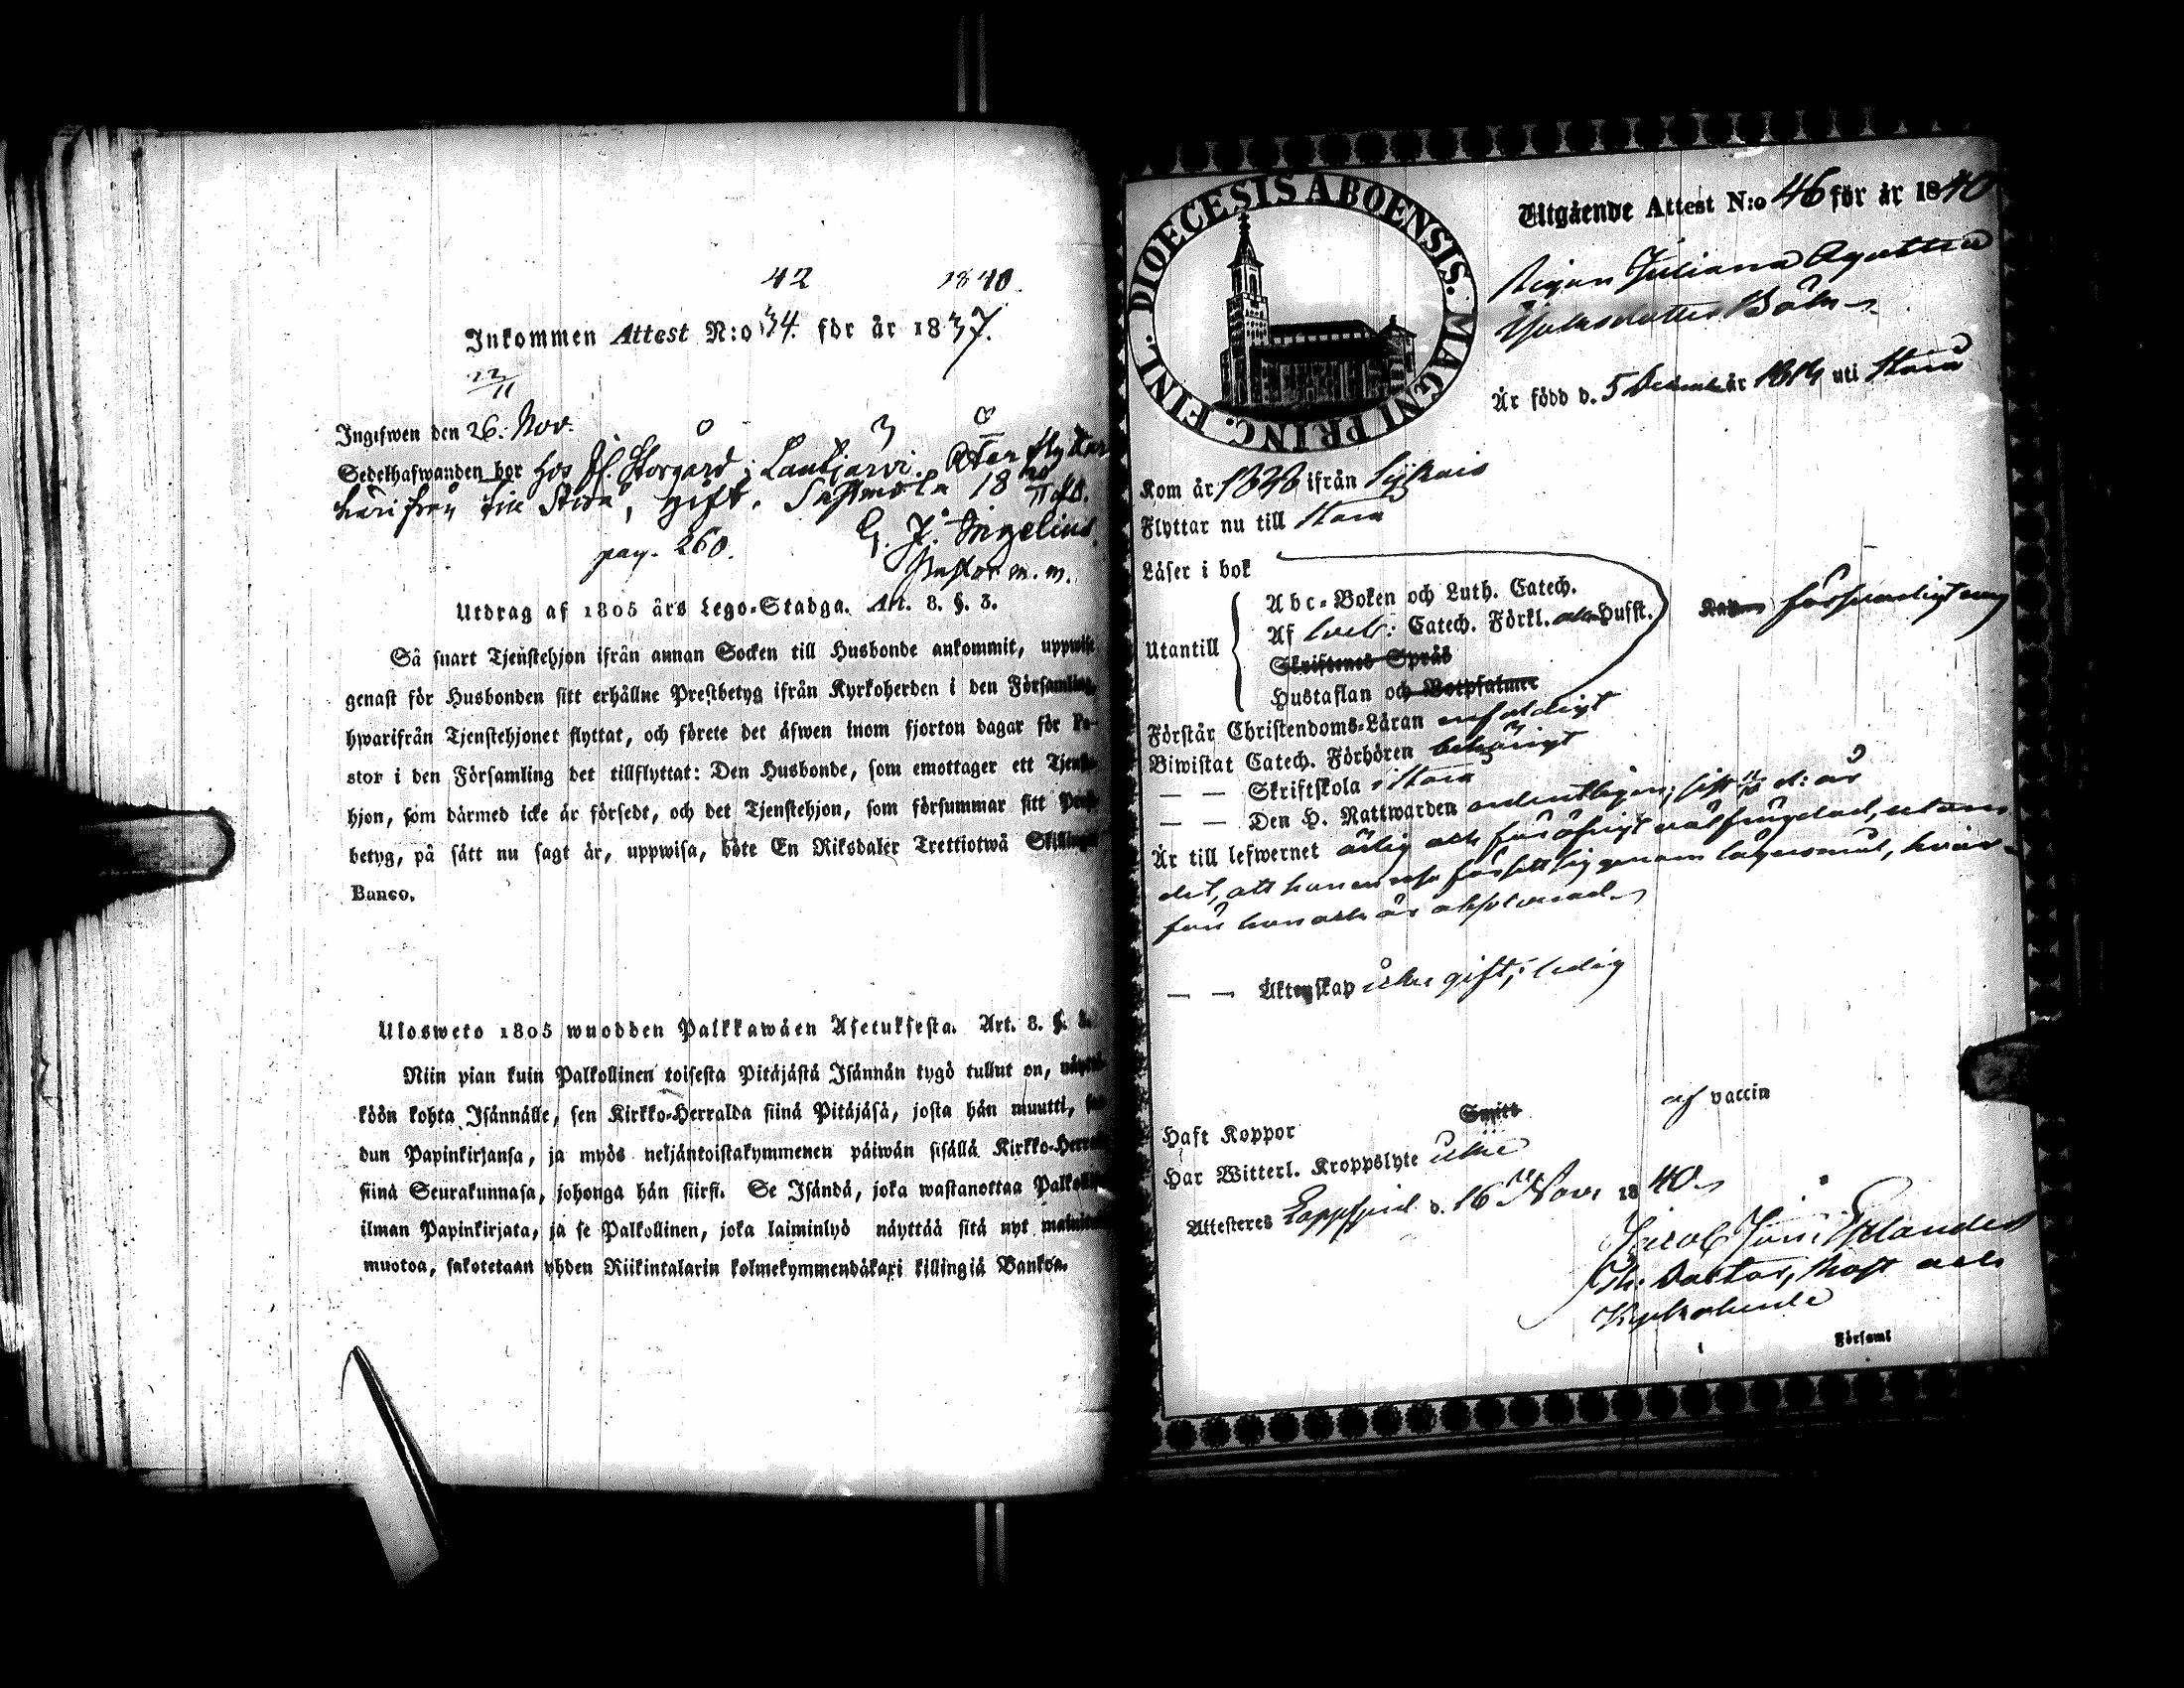 42 1840.
Inkommen Attest N:o 34. för år 1837.
22/11
Ingifwen den 26. Nov.
Sedelhafwanden bor hos Storgård, Lankjärvi. Återflyttar
härifrån till Storå, gift. Sastmola 18 20/11 40.
pag. 260. G. J. Ingelius.
Pastor m. m.
Utdrag af 1805 års Lego-Stadga. Art. 8. §. 3.
Så snart Tjenstehjon ifrån annan Socken till Husbonde ankommit, uppwise
genast för Husbonden sitt erhållne Prestbetyg ifrån Kyrkoherden i den Församling,
hwarifrån Tjenstehjonet flyttat, och förete det äfwen inom fjorton dagar för Pa-
stor i den Församling det tillflyttat: Den Husbonde, som emottager ett Tjenste-
hjon, som därmed icke är försedt, och det Tjenstehjon, som försummar sitt Prest-
betyg, på sätt nu sagt är, uppwisa, böte En Riksdaler Trettiotwå Skillingar
Banco.
Ulosweto 1805 wuodden Palkkawäen Asetuksesta. Art. 8. §. 3.
Niin pian kuin Palkollinen toisesta Pitäjästä Isännän tygö tullut on, näyttä-
köön kohta Isännälle, sen Kirkko-Herralda siinä Pitäjäsä, josta hän muutti, saa-
dun Papinkirjansa, ja myös neljäntoistakymmenen päiwän sisällä Kirkko-Herralle
siinä Seurakunnasa, johonga hän siirsi. Se Isändä, joka wastanottaa Palkollisen
ilman Papinkirjata, ja se Palkollinen, joka laiminlyö näyttää sitä nyt mainitulla
muotoa, sakotetaan yhden Riikintalarin kolmekymmendäkaxi killingiä Bankoa.
DIOECESIS ABOENSIS. MAGNI PRINC. FINL.
Utgående Attest N:o 46 för år 1840
Pigan Juliana Agatha
Böhn
Är född d. 5 December år 1814 uti Storå
Kom år 1838 ifrån
Flyttar nu till Storå
Läser i bok
Utantill
Abc-Boken och Luth. Catech.
Af Catech. Förkl. och Hufst.
Skriftenes Språk
Hustaflan och Botpsalmer
försvarligt
Förstår Christendoms-Läran enfaldigt
Biwistat Catech. Förhören behörigt
— — Skriftskola i Storå
— — Den H. Nattwarden ordentligen, sist d: år
Är till lefwernet ärlig och för öfrigt välfrägdad, utom
det, att hon en resa försett sig genom lägersmål, hvar-
före hon ock är absolverad
— — Äktenskap icke gift; ledig
Haft Koppor Smitt af vaccin
Har Witterl. Kroppslyte icke
Attesteres Lappfjerd d. 16 Nov. 1840
Jacob Jon. Estlander
Th: Doctor, Prost och
Kyrkoherde
Församl